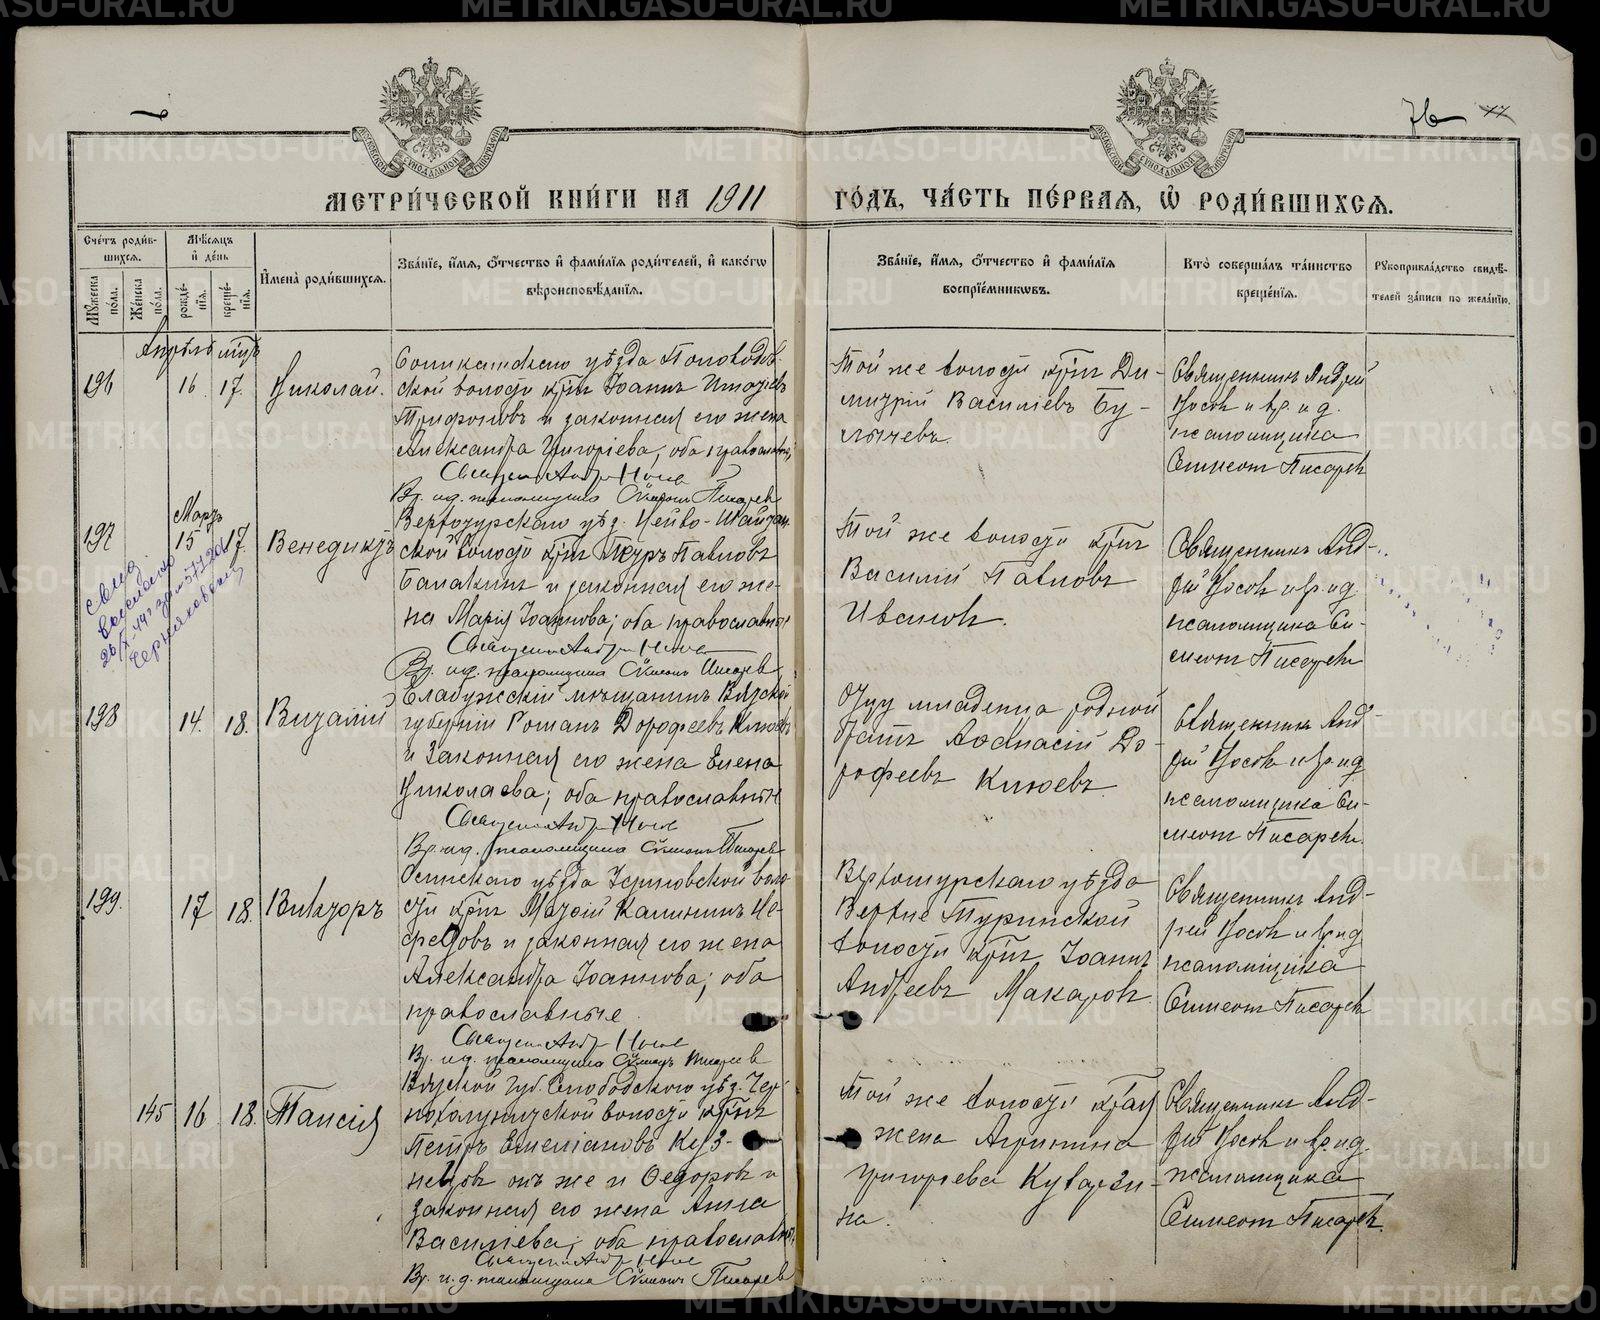 76
МЕТРИ́ЧЕСКОЙ КНИ́ГИ НА 1911 ГО́ДЪ, ЧА́СТЬ ПЕ́РВАЯ, Ѿ РОДИ́ВШИХСЯ.
Сче́тъ роди́в-
шихся.
Му́жеска по́ла.
Же́нска по́ла.
Мѣ́сяцъ
и де́нь
рожде́-
нїя.
креще́-
нїя.
Имена̀ роди́вшихся.
Зва́нїе, и́мя, о́тчество и фами́лїя роди́телей, и како́гѡ
вѣроисповѣ́данїя.
Зва́нїе, и́мя, о́тчество и фами́лїя
воспрїе́мникѡвъ.
Кто̀ соверша́лъ та́инство
креще́нїя.
Рукоприкла́дство свидѣ́-
телей за́писи по жела́нїю.
Апрѣль мцъ
196
16.
17.
Николай.
Соликамскаго уѣзда Половодов-
ской волости кр-нъ Іоаннъ Игнатіевъ
Трифоновъ и законная его жена
Александра Григоріева, оба православные
Священ. Андр. Носов
Вр. и.д. псаломщика Сѵмеонъ Писаревъ
Той же волости кр-нъ Ди-
митрій Василіевъ Бу-
лычевъ.
Священникъ Андрей
Носовъ и вр. и д.
псаломщика
Симеонъ Писаревъ
197
Мартъ
15
17.
Венедиктъ
Верхотурскаго уѣз. Нейво-Шайтан-
ской волости кр-нъ Петръ Павловъ
Балакинъ и законная его же-
на Марія Іоаннова; оба православные
Священ. Андр. Носов
Вр. и.д. псаломщика Сѵмеонъ Писаревъ
Той же волости кр-нъ
Василій Павловъ
Ивановъ.
Священникъ Анд-
рей Носовъ и вр. и д.
псаломщика Си-
меонъ Писаревъ
198
14.
18.
Виталій
Елабужскій мѣщанинъ Вятской
губерніи Романъ Дорофеевъ Клюевъ
и законная его жена Елена
Николаева; оба православные
Священ. Андр. Носов
Вр. и.д. псаломщика Сѵмеонъ Писаревъ
Отцу младенца родной
братъ Аѳанасій До-
рофеевъ Клюевъ.
Священникъ Анд-
рей Носовъ и вр. и д
псаломщика Си-
меонъ Писаревъ.
199.
17
18.
Викторъ
Осинскаго уѣзда Устиновской воло-
сти кр-нъ Матѳій Калининъ Не-
федовъ и законная его жена
Александра Іоаннова; оба
православные.
Священ. Андр. Носов
Вр. и.д. псаломщика Сѵмеонъ Писаревъ
Верхотурскаго уѣзда
Верхне Туринской
волости кр-нъ Іоаннъ
Андреевъ Макаровъ.
Священникъ Анд-
рей Носовъ и вр. и д
псаломщика
Симеонъ Писаревъ
145
16
18.
Таисія
Вятской губ. Слободского уѣз. Чер-
нохолуницкой волости кр-нъ
Петръ Емеліановъ Куз-
нецовъ онъ же и Ѳедоровъ и
законная его жена Анна
Василіева; оба православные
Священ. Андр. Носов
Вр. и.д. псаломщика Сѵмеонъ Писаревъ
Той же волости кр-ная
жена Агрипина
Григоріева Куварзи-
на.
Священникъ Анд-
рей Носовъ и вр. и д.
псаломщика
Симеонъ Писаревъ.
METRIKI.GASO-URAL.RU